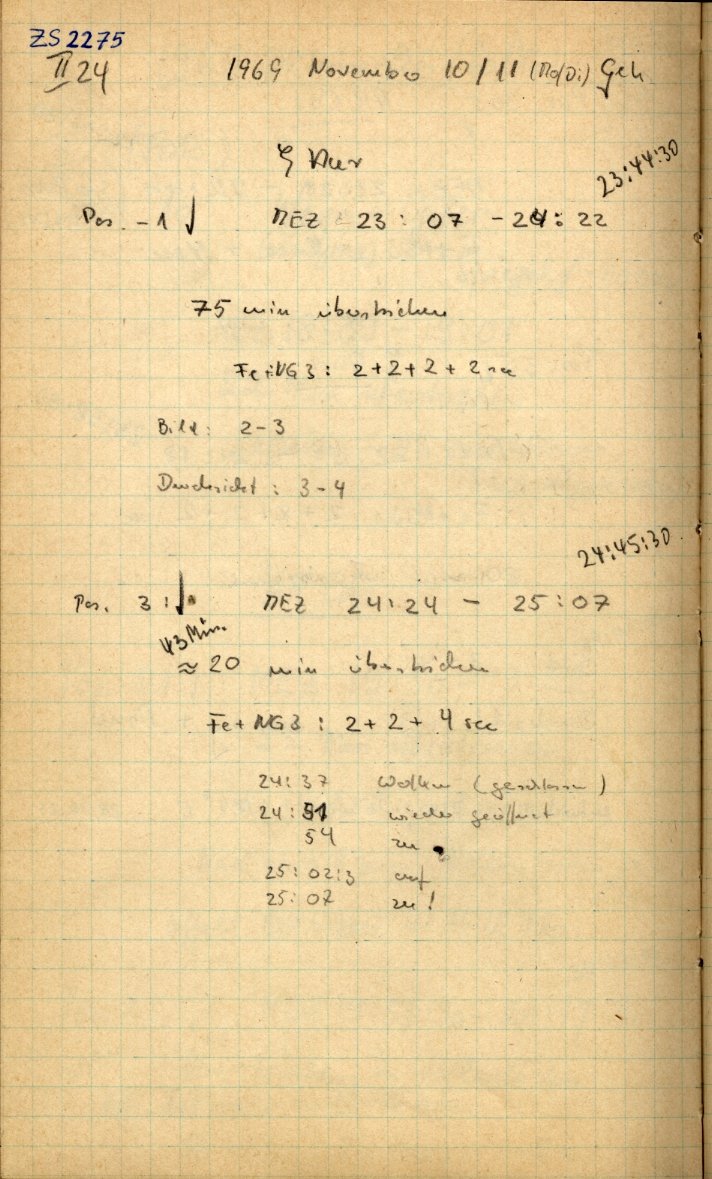 ZS 2275
II 24 1969 November 10/11 (Mo/Di) Geh
ζ Aur
23:44:30
Pos. -1 ↓ MEZ 23:07 - 24:22
75 min überstrichen
Fe+NG3: 2+2+2+2 sec
Bild: 2-3
Durchsicht: 3-4
24:45:30
Pos. 3:↓ MEZ 24:24 - 25:07
43 Min.
≈ 20 min überstrichen
Fe+NG3: 2+2+4 sec
24:37 Wolken (geschlossen)
24:51 wieder geöffnet
54 zu
25:02:3 auf
25:07 zu!